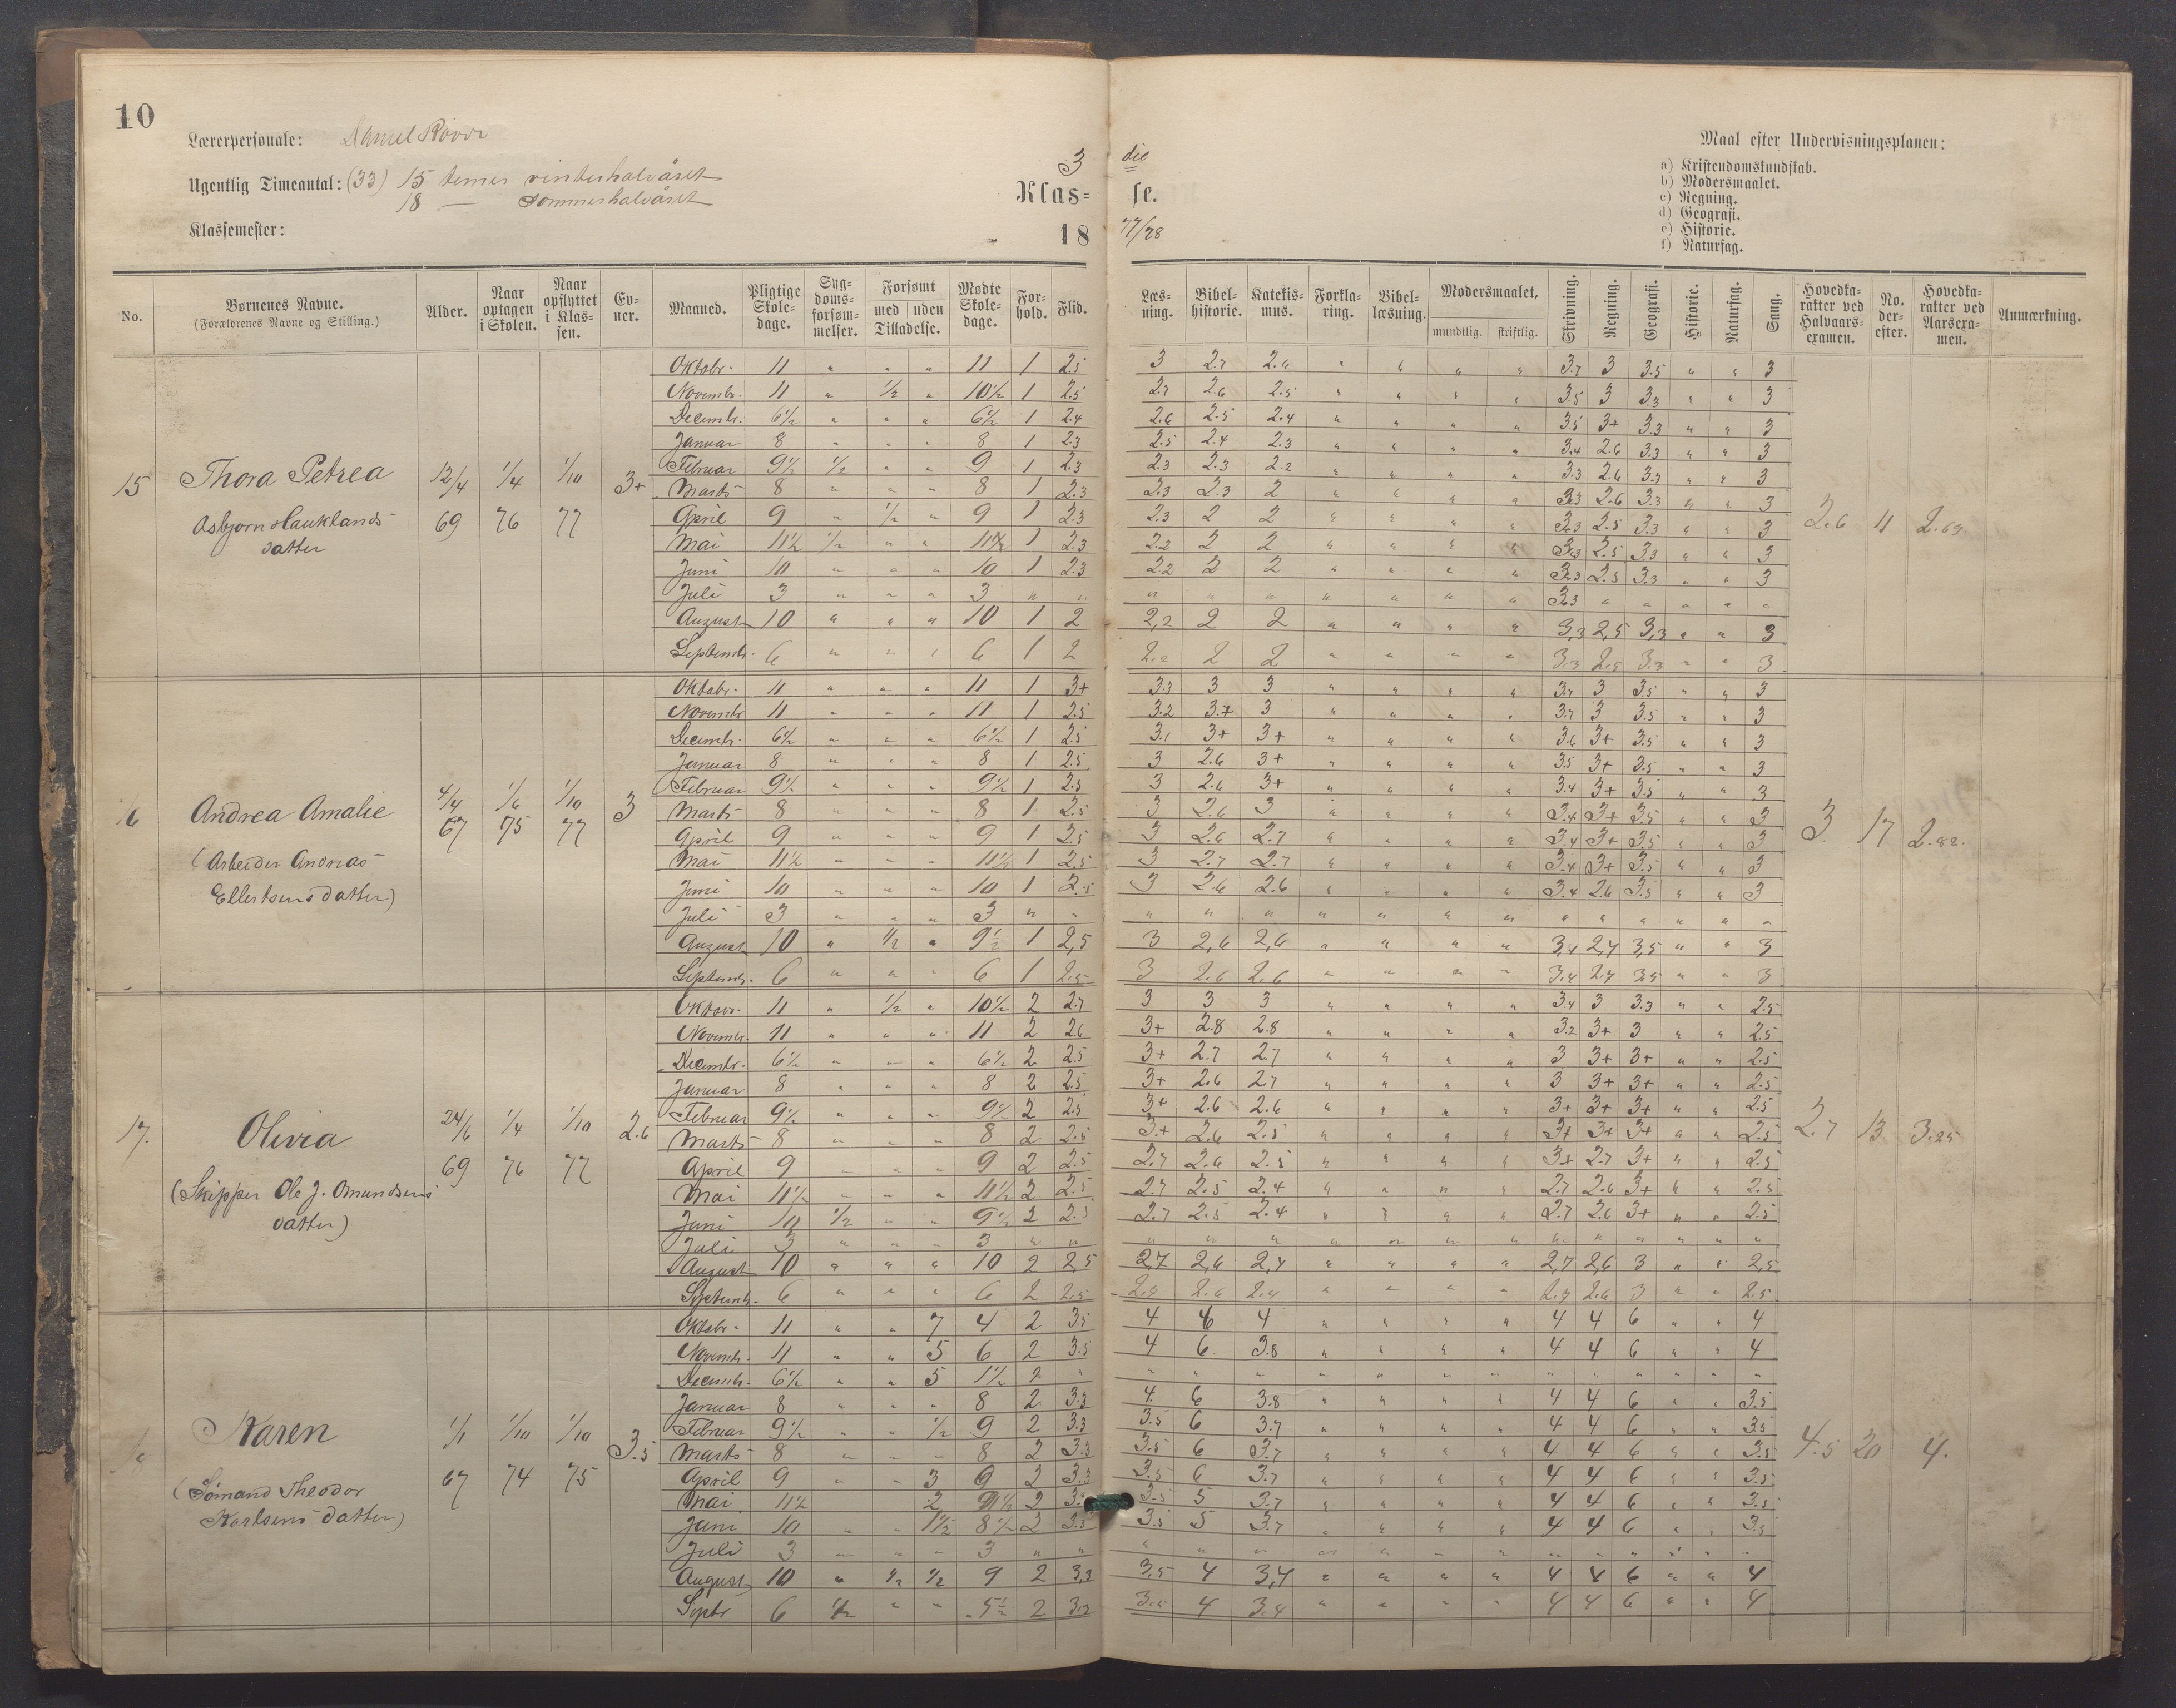 10
Lærerpersonale: Daniel
Ugentlig Timeantal: (33) 15 timer vinterhalvåret
18 — sommerhalvåret
Klassemester:
3 die
Klas= se.
18 77/78
Maal efter Undervisningsplanen:
a) Kristendomskundskab.
b) Modersmaalet.
c) Regning.
d) Geografi.
e) Historie.
f) Naturfag.
No. Børnenes Navne. (Forældrenes Navne og Stilling.) Alder. Naar optagen i Skolen. Naar opflyttet i Klassen. Evner. Maaned. Pligtige Skoledage. Sygdomsforsømmelser. Forsømt med uden Tilladelse. Mødte Skoledage. Forhold. Flid. Læsning. Bibelhistorie. Katekismus. Forklaring. Bibellæsning. Modersmaalet, mundtlig. skriftlig. Skrivning. Regning. Geografi. Historie. Naturfag. Sang. Hovedkarakter ved Halvaarsexamen. No. derefter. Hovedkarakter ved Aarsexamen. Anmærkning.
15 Thora Petrea 12/4 69 1/4 76 1/10 77 3+ 2.6 11 2.63
Asbjørn Hauklands datter
Oktobr. 11 " " " 11 1 2.5 3 2.7 2.6 " " " " 3.7 3 3.5 " " 3
Novembr. 11 " 1/2 " 10 1/2 1 2.5 2.7 2.6 2.5 " " " " 3.5 3 3.3 " " 3
Decembr. 6 1/2 " " " 6 1/2 1 2.4 2.6 2.5 2.4 " " " " 3.5 3+ 3.3 " " 3
Januar 8 " " " 8 1 2.3 2.5 2.4 2.3 " " " " 3.4 2.6 3.3 " " 3
Februar 9 1/2 1/2 " " 9 1 2.3 2.3 2.3 2.2 " " " " 3.3 2.6 3.3 " " 3
Marts 8 " " " 8 1 2.3 2.3 2.3 2 " " " " 3.3 2.6 3.3 " " 3
April 9 " 1/2 " 9 1 2.3 2.3 2 2 " " " " 3.3 2.5 3.3 " " 3
Mai 11 1/2 1/2 " " 11 1 2.3 2.2 2 2 " " " " 3.3 2.5 3.3 " " 3
Juni 10 " " " 10 1 2.3 2.2 2 2 " " " " 3.3 2.5 3.3 " " 3
Juli 3 " " " 3 " " " " " " " " " 3.3 " " " " "
August 10 " " " 10 1 2 2,2 2 2 " " " " 3,3 2,5 3,3 " " 3
Septembr. 6 " " " 6 1 2 2 2 " " " " 3.3 2.5 3.3 " " 3
16 Andrea Amalie 4/4 67 1/6 75 1/10 77 3 3. 17 2.82.
(Arbeider Andreas
Ellertsens datter)
Oktobr. 11 " " " 11 1 3+ 3.3 3 3 " " " " 3.7 3 3.5 " " 3
Novembr 11 " " " 11 1 2.5 3.2 3.+ 3 " " " " 3.7 3 3.5 " " 3
Decembr. 6 1/2 " " " 6 1/2 1 2.5 3.1 3+ 3+ " " " " 3.6 3+ 3.5 " " 3
Januar 8 " " " 8 1 2.5 3 2.6 3+ " " " " 3.5 3+ 3.5 " " 3
Februar 9 1/2 " " " 9 1/2 1 2.5 3 2.6 3+ " " " " 3.4 3+ 3.5 " " 3
Marts 8 " " " 8 1 2.5 3 2.6 3 " " " " 3.4 3+ 3.5 " " 3
April 9 " " " 9 1 2.5 3 2.6 2.7 " " " " 3.4 3+ 3.5 " " 3
Mai 11 1/2 " " " 11 1/2 1 2.5 3 2.7 2.7 " " " " 3.4 3+ 3.5 " " 3
Juni 10 " " " 10 1 2.5 3 2.6 2.6 " " " " 3.4 2.6 3.5 " " 3
Juli 3 " " " 3 " " " " " " " " " " " " " " "
August 10 " 1/2 " 9 1/2 1 2,5 3 2,6 2,6 " " " " 3,4 2,7 3,5 " " 3
Septembr. 6 " " " 6 1 2.5 3 2.6 2.6 " " " " 3.4 2.7 3.5 " " 3
17. Olivia 24/6 69 1/4 76 1/10 77 2.6 2.7 13 3.25
(Skipper Ole J. Omundsens
datter)
Oktobr. 11 " 1/2 " 10 1/2 2 2.7 3 3 3 " " " " 3.4 3 3.3 " " 2.5
Novembr. 11 " " " 11 2 2.6 3+ 2.8 2.8 " " " " 3.2 3+ 3 " " 2.5
Decembr. 6 1/2 " " " 6 1/2 2 2.5 3+ 2.7 2.7 " " " " 3 3+ 3+ " " 2.5
Januar 8 " " " 8 2 2.5 3+ 2.6 2.7 " " " " 3 3+ 3+ " " 2.5
Februar 9 1/2 " " " 9 1/2 2 2.5 3+ 2.6 2.6 " " " " 3+ 3+ 3+ " " 2.5
Marts 8 " " " 8 2 2.5 3.+ 2.6 2.5 " " " " 3+ 3+ 3+ " " 2.5
April 9 " " " 9 2 2.5 2.7 2.6 2.5 " " " " 3+ 2.7 3+ " " 2.5
Mai 11 1/2 " " " 11 1/2 2 2.5 2.7 2.5 2.4 " " " " 2.7 2.6 3+ " " 2.5
Juni 10 1/2 " " 9 1/2 2 2.5 2.7 2.5 2.4 " " " " 2.7 2.6 3+ " " 2.5
Juli 3 " " " 3 " " " " " " " " " " " " " " "
August 10 " " " 10 2 2,5 2,7 2,6 2,4 " " " " 2,7 2,6 3 " " 2,5
Septembr. 6 " " " 6 2 2.5 2.7 2.6 2.4 " " " " 2.7 2.6 3 " " 2.5
Karen 1/1 67 1/10 74 1/10 75 3.5 4.5 20 4.
(Sømand Theodor
Karlsens datter)
Oktobr. 11 " " 7 4 2 3.5 4 6 4 " " " " 4 4 6 " " 4
Novembr. 11 " " 5 6 2 3.5 4 6 3.8 " " " " 4 4 6 " " 4
Decembr. 6 1/2 " " 5 1 1/2 2 " " " " " " " " " " " " " "
Januar 8 " " " 8 2 3.3 4. 6 3.8 " " " " 4 4 6 " " 3.5
Februar 9 1/2 " " 1/2 9 2 3.3 3.5 6 3.7 " " " " 4 4 6 " " 3.5
Marts 8 " " " 8 2 3.3 3.5 6 3.7 " " " " 4 4 6 " " 3.5
April 9 " " 3 6 2 3.3 3.5 6 3.7 " " " " 4 4 6 " " 3.5
Mai 11 1/2 2 9 1/2 2 3.5 5 3.7 " " " " 4 4 6 " " 3.5
Juni 10 " " 1 1/2 8 1/2 2 3.3 3.5 5 3.7 " " " " 4 4 6 " " 3.5
Juli 3 " " " 3 " " " " " " " " " " " " " " "
August 10 " 1/2 1/2 9 2 3,3 3,5 4 3,4 " " " " 4 4 6 " " 4
Septr 6 1/2 " " 5 1/2 2 3.3 3.5 4 3.4 " " " " 4 4 6 " " 4